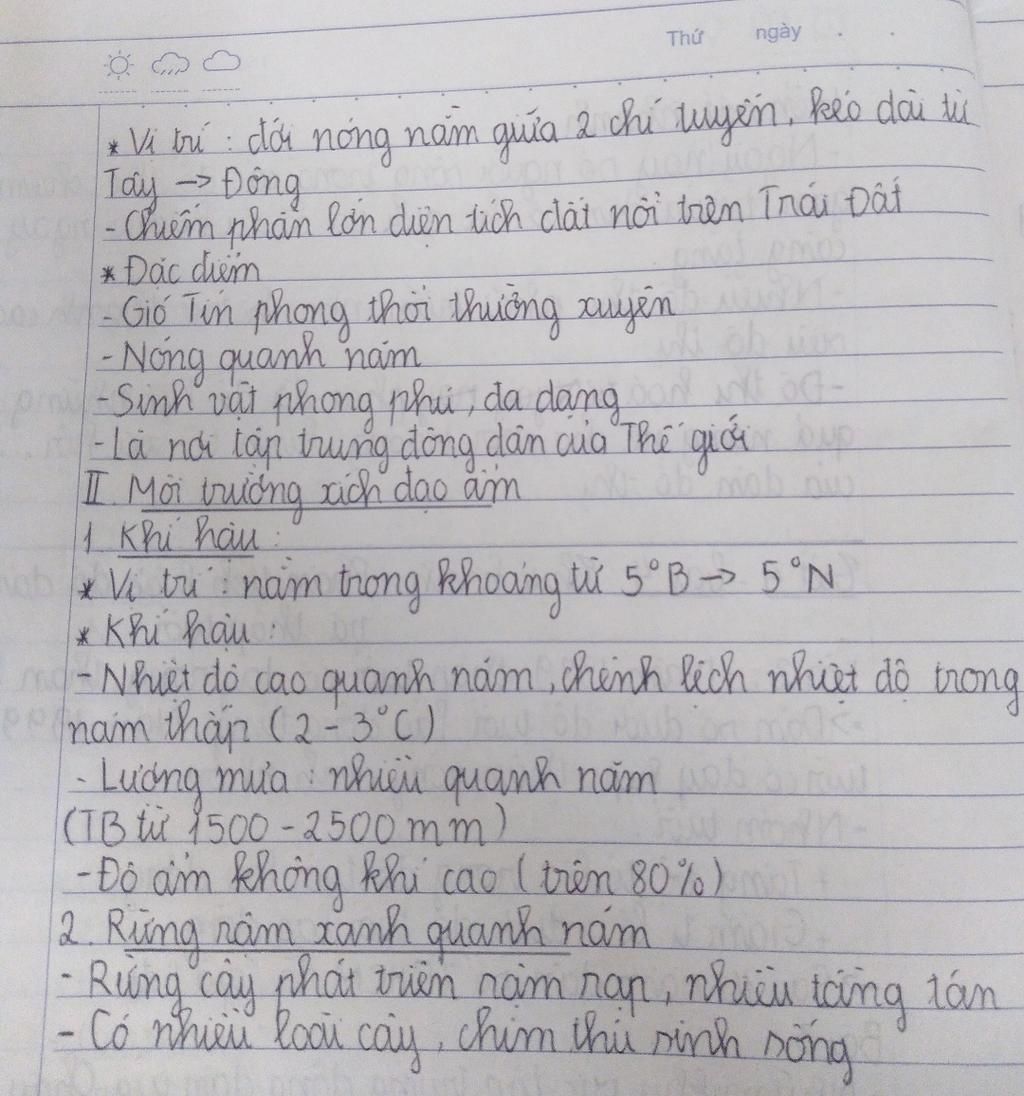 Thứ ngày . .
* Vị trí : đới nóng nằm giữa 2 chí tuyến, kéo dài từ
Tây -> Đông
- Chiếm phần lớn diện tích đất nổi trên Trái Đất
* Đặc điểm
- Gió Tín phong thổi thường xuyên
- Nóng quanh năm
- Sinh vật phong phú, đa dạng
- Là nơi tập trung đông dân của Thế giới
II. Môi trường xích đạo ẩm
1. Khí hậu :
* Vị trí : nằm trong khoảng từ 5°B -> 5°N
* Khí hậu :
- Nhiệt độ cao quanh năm, chênh lệch nhiệt độ trong
năm thấp (2 - 3°C)
- Lượng mưa : nhiều quanh năm
(TB từ 1500 - 2500 mm)
- Độ ẩm không khí cao (trên 80%)
2. Rừng rậm xanh quanh năm
- Rừng cây phát triển rậm rạp, nhiều tầng tán
- Có nhiều loài cây, chim thú sinh sống